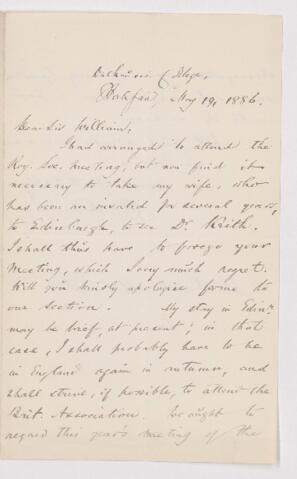 Dalhousie College,
Halifax, May 19, 1886.
Dear Sir William,
I had arranged to attend the
Roy. Soc. meeting, but now find it
necessary to take my wife, who
has been an invalid for several years,
to Edinburgh, to see Dr. Keith.
I shall thus have to forego your
meeting, which I very much regret.
Will you kindly apologise for me to
our section. My stay in Edinr
may be brief, at present; in that
case, I shall probably have to be
in England again in autumn, and
shall strive, if possible, to attend the
Brit. Association. We ought to
regard this year's meeting of the